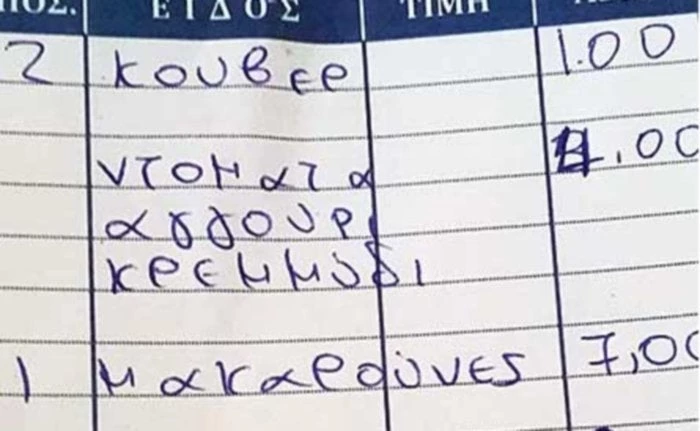 ΠΟΣ. ΕΙΔΟΣ ΤΙΜΗ
2 κουβερ 1.00
ντοματα 4,00
αγγουρι
κρεμμύδι
1 μακαρούνες 7,00